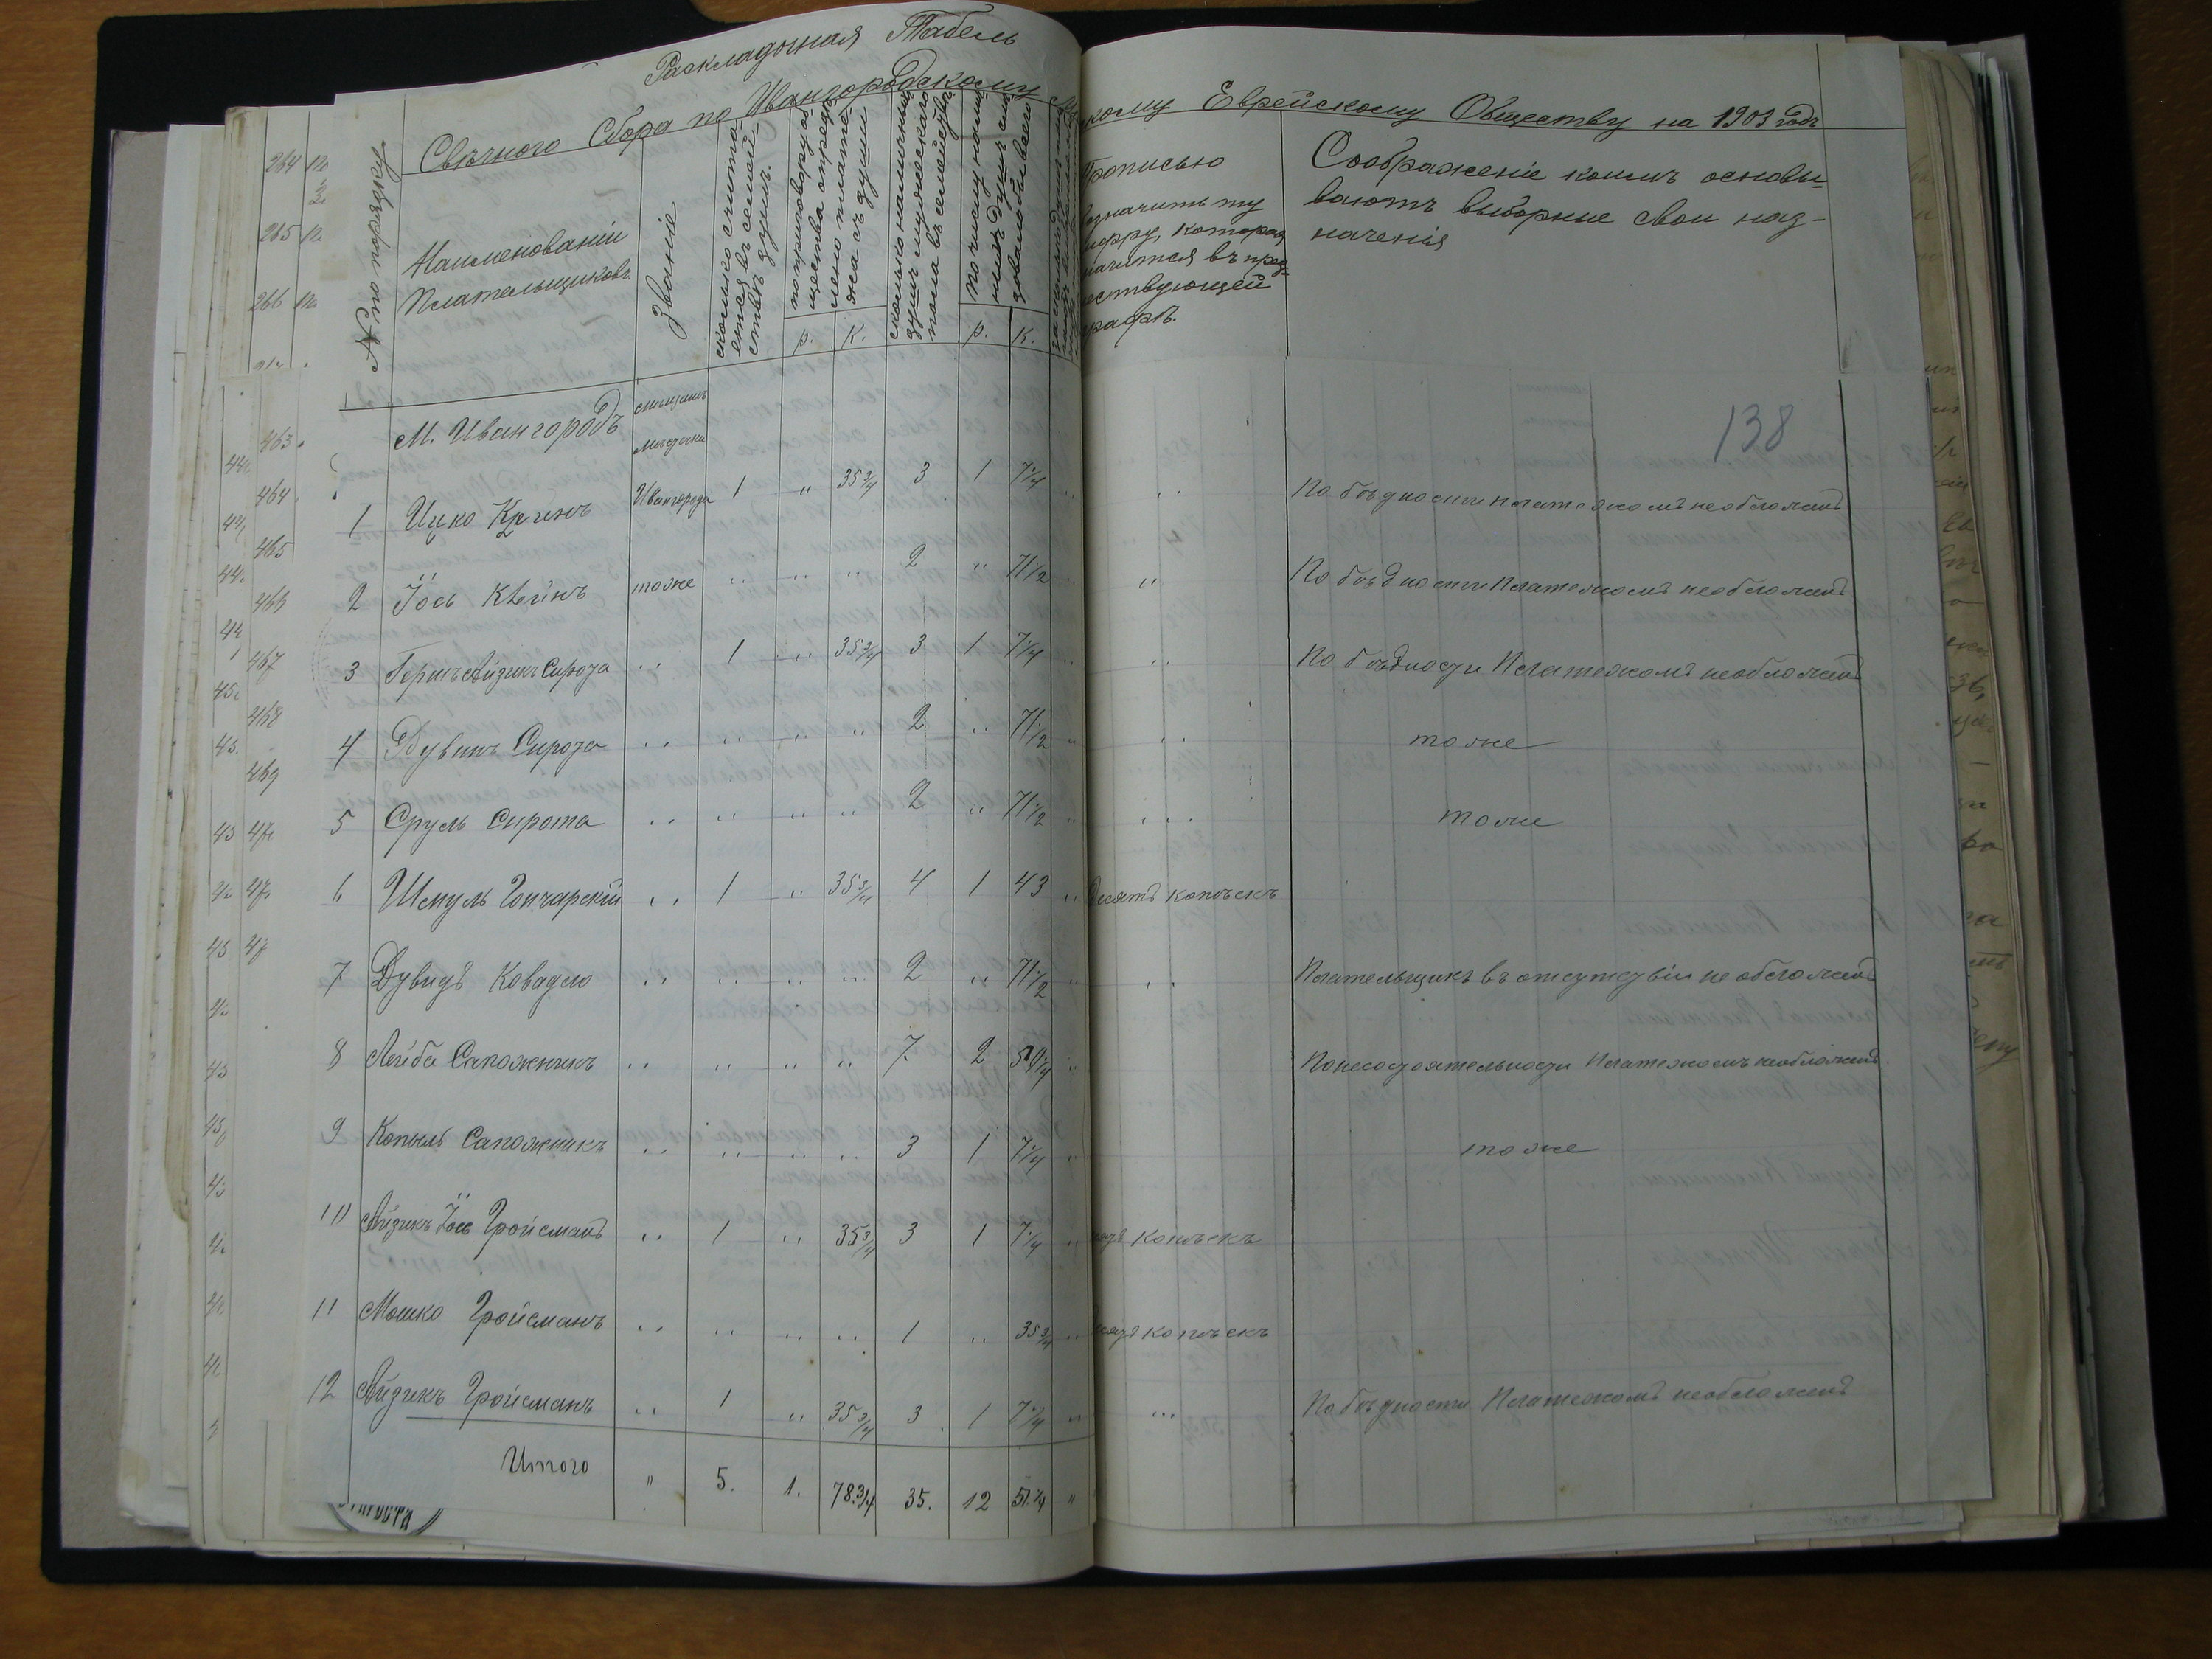 Раскладочная Табель
Свѣчного Сбора по Ивангородскому
кому Еврейскому Обществу на 1903 годъ
№ по порядку
Наименованіи
Плательщиковъ.
Званіе
сколько считта-
ется въ семей-
ствѣ душъ.
по приговору об-
щества опредѣ-
лено плате-
жа съ души
р. к.
сколько наличныхъ
душъ мужескаго
пола въ семействѣ
р. к.
Прописью
означить ту
цифру, которая
значится въ пред-
ествующей
графѣ.
Соображеніе коимъ основы-
ваютъ выборные свои наз-
наченія
138
М. Ивангородъ
мѣстечка
1 Ицко Кринъ Ивангорода 1 " 35 3/4 3 1 7 1/4 " " По бѣдности платежомъ необложенъ
2 Іось Клейнъ тоже " " " 2 " 71 1/2 " " По бѣдности Платежомъ необложенъ
3 Гершъ Айзикъ Сирота " 1 " 35 3/4 3 1 7 1/4 " " По бѣдности Платежомъ необложенъ
4 Дувинъ Сирота " " " " 2 " 71 1/2 " " тоже
5 Сруль Сирота " " " " 2 " 71 1/2 " " тоже
6 Шмуль Гончарскій " 1 " 35 3/4 4 1 43 " Десять копѣекъ
7 Дувидъ Ковадло " " " " 2 " 71 1/2 " " Плательщикъ въ отсутствіи не обложенъ
8 Лейба Сапожникъ " " " " 7. 2 50 1/4 " По несостоятельности Платежомъ необложенъ
9 Копыль Сапожникъ " " " " 3 1 7 1/4 " тоже
10 Айзикъ Іось Гройсманъ " 1 " 35 3/4 3 1 7 1/4 " копѣекъ
11 Мошко Гройсманъ " " " " 1 " 35 3/4 " копѣекъ
12 Айзикъ Гройсманъ " 1 " 35 3/4 3 1 7 1/4 " " По бѣдности Платежомъ необложенъ
Итого " 5. 1. 78.3/4 35. 12 51.1/4 "
264
265
266
463
464
465
466
467
468
469